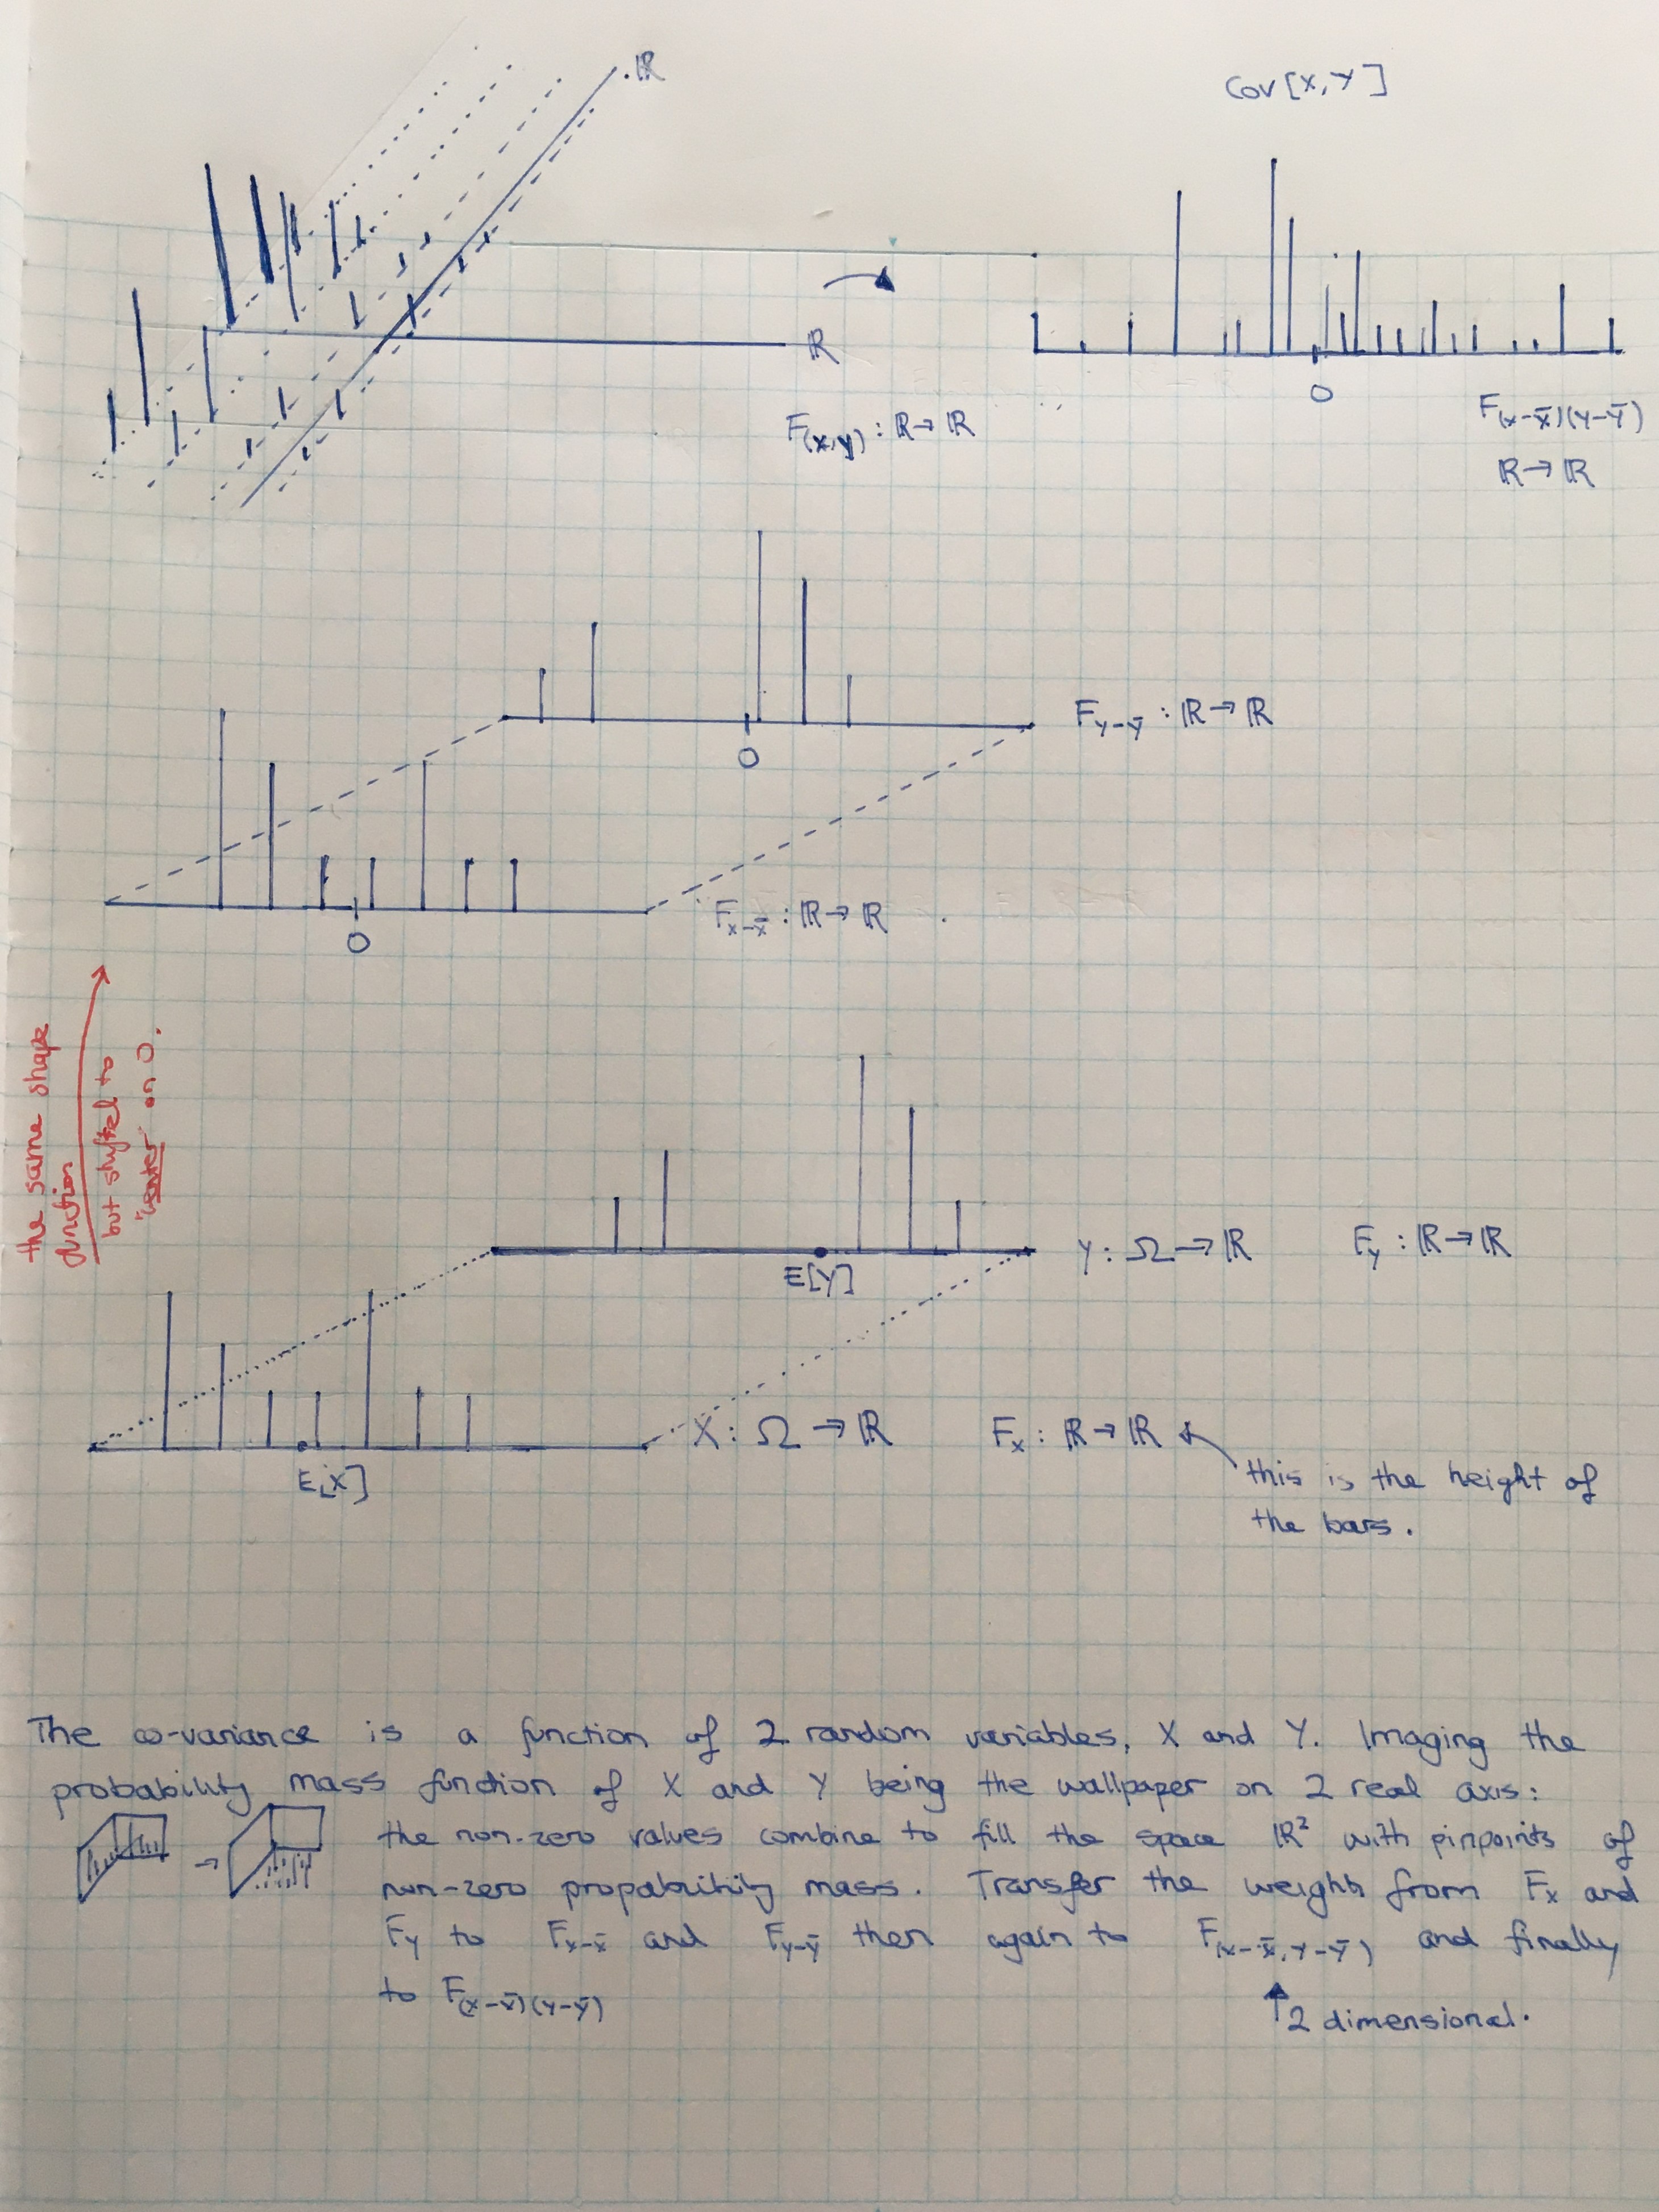 .ℝ
Cov[X,Y]
ℝ
0
F(x,y) : ℝ→ℝ
F(x-x̄)(y-ȳ)
ℝ→ℝ
Fy-ȳ : ℝ→ℝ
0
Fx-x̄ : ℝ→ℝ
0
the same shape
function
but shifted to
"center on 0.
Y: Ω→ℝ Fy : ℝ→ℝ
E[Y]
X: Ω→ℝ Fx : ℝ→ℝ
E[X]
this is the height of
the bars.
The co-variance is a function of 2 random variables, X and Y. Imaging the
probability mass function of X and Y being the wallpaper on 2 real axis:
the non-zero values combine to fill the space ℝ² with pinpoints of
non-zero propabibility mass. Transfer the weights from Fx and
Fy to Fx-x̄ and Fy-ȳ then again to F(x-x̄,y-ȳ) and finally
to F(x-x̄)(y-ȳ)
2 dimensional.